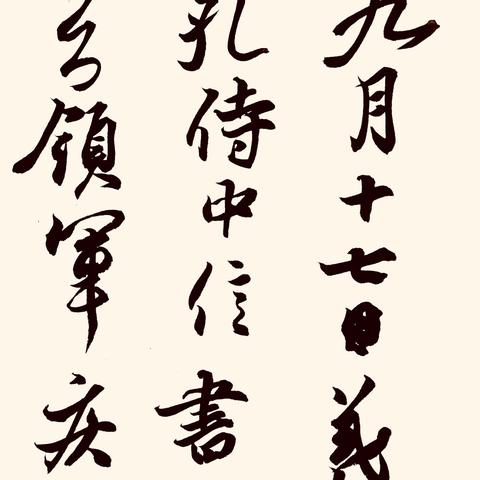 九月十七日羲
孔侍中信書
領軍疾